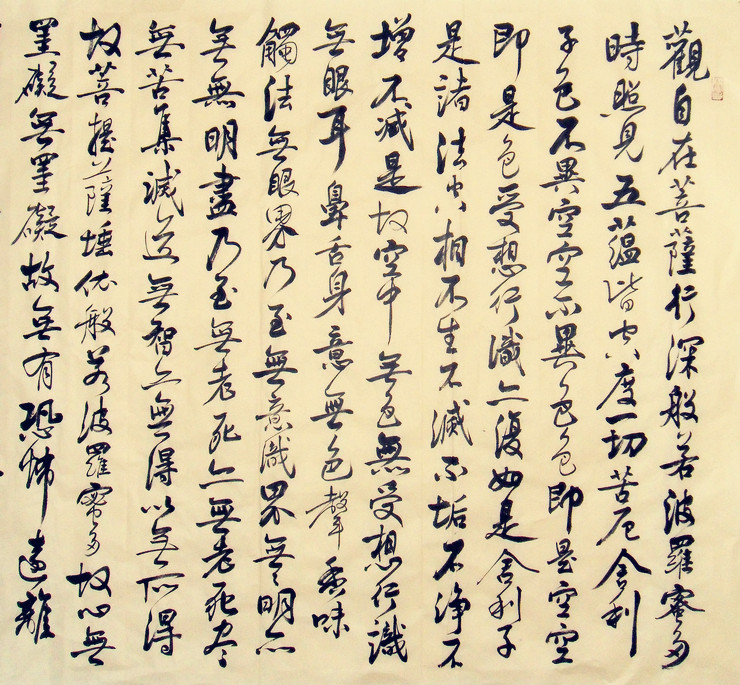 觀自在菩薩行深般若波羅蜜多
時照見五蘊皆空度一切苦厄舍利
子色不異空空不異色色即是空空
即是色受想行識亦復如是舍利子
是諸法空相不生不滅不垢不淨不
增不减是故空中無色無受想行識
無眼耳鼻舌身意無色聲香味
觸法無眼界乃至無意識界無〻明亦
無無明盡乃至無老死亦無老死盡
無苦集滅道無智亦無得以無所得
故菩提薩埵依般若波羅蜜多故心無
罣礙無罣礙故無有恐怖遠離